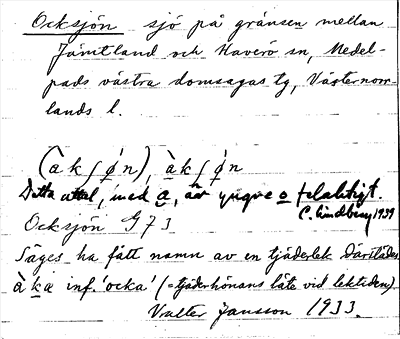 Ocksjön sjö på gränsen mellan
Jämtland och Haverö sn, Medel-
pads västra domsagas tg, Västernorr-
lands l.
(àk∫ø̀n), àk∫ø̀n
Detta uttal, med a, är yngre o felaktigt.
C. Lindberg 1939
Ocksjön G73
Säges ha fått namn av en tjäderlek därstädes
àka inf. 'ocka' (= tjäderhönans läte vid lektiden).
Valter Jansson 1933.